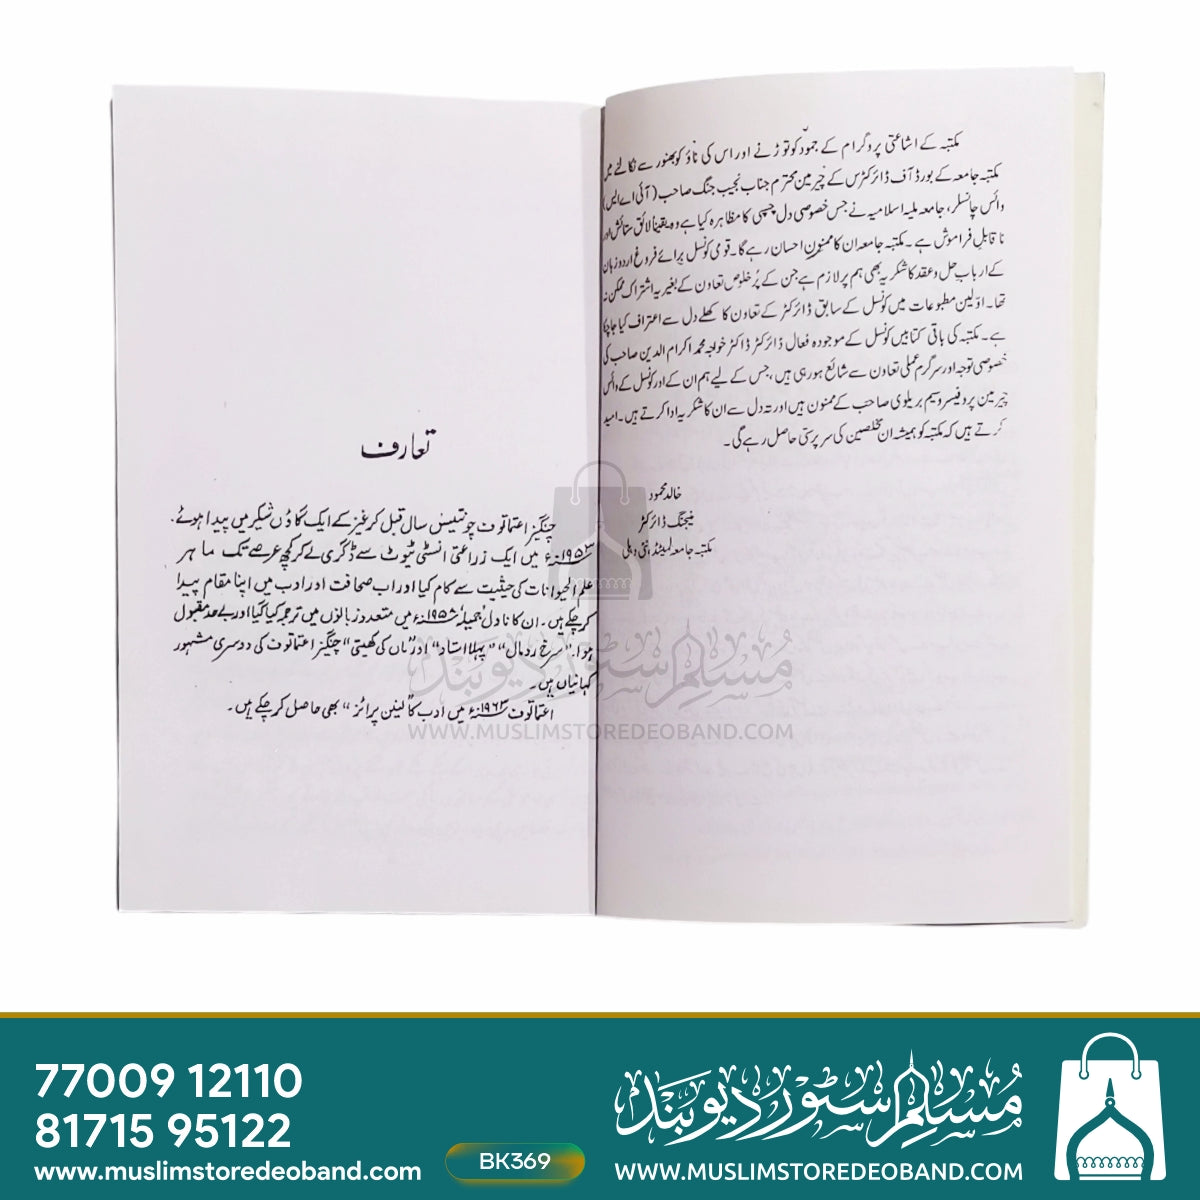 مکتبہ کے اشاعتی پروگرام کے جمود کو توڑنے اور اس کی ناؤ کو بھنور سے نکالنے میں
مکتبہ جامعہ کے بورڈ آف ڈائرکٹرس کے چیرمین محترم جناب نجیب جنگ صاحب (آئی اے ایس)
وائس چانسلر، جامعہ ملیہ اسلامیہ نے جس خصوصی دل چسپی کا مظاہرہ کیا ہے وہ یقیناً لائق ستائش اور
ناقابلِ فراموش ہے۔ مکتبہ جامعہ ان کا ممنونِ احسان رہے گا۔ قومی کونسل برائے فروغ اردو زبان
کے اربابِ حل و عقد کا شکریہ بھی ہم پر لازم ہے جن کے پُرخلوص تعاون کے بغیر یہ اشتراک ممکن نہ
تھا۔ اوّلین مطبوعات میں کونسل کے سابق ڈائرکٹر کے تعاون کا کھلے دل سے اعتراف کیا جا چکا
ہے۔ مکتبہ کی باقی کتابیں کونسل کے موجودہ فعال ڈائرکٹر ڈاکٹر خواجہ محمد اکرام الدین صاحب کی
خصوصی توجہ اور سرگرم عملی تعاون سے شائع ہو رہی ہیں، جس کے لیے ہم ان کے اور کونسل کے وائس
چیرمین پروفیسر وسیم بریلوی صاحب کے ممنون ہیں اور تہ دل سے ان کا شکریہ ادا کرتے ہیں۔ امید
کرتے ہیں کہ مکتبہ کو ہمیشہ ان مخلصین کی سرپرستی حاصل رہے گی۔
خالد محمود
منیجنگ ڈائرکٹر
مکتبہ جامعہ لمیٹڈ، نئی دہلی
تعارف
چنگیز اعتماتوف چونتیس سال قبل کرغیز کے ایک گاؤں شکیر میں پیدا ہوئے۔
۱۹۵۳ء میں ایک زراعتی انسٹی ٹیوٹ سے ڈگری لے کر کچھ عرصے تک ماہر
علم الحیوانات کی حیثیت سے کام کیا اور اب صحافت اور ادب میں اپنا مقام پیدا
کر چکے ہیں۔ ان کا ناول "جمیلہ" ۱۹۵۸ء میں متعدد زبانوں میں ترجمہ کیا گیا اور بے حد مقبول
ہوا۔ "سرخ رومال" "پہلا استاد" اور "ماں کی کھیتی" چنگیز اعتماتوف کی دوسری مشہور
کہانیاں ہیں۔
اعتماتوف ۱۹۶۳ء میں ادب کا "لینن پرائز" بھی حاصل کر چکے ہیں۔
مسلم سٹور دیوبند
WWW.MUSLIMSTOREDEOBAND.COM
77009 12110
81715 95122
www.muslimstoredeoband.com
BK369
مسلم سٹور دیوبند
WWW.MUSLIMSTOREDEOBAND.COM